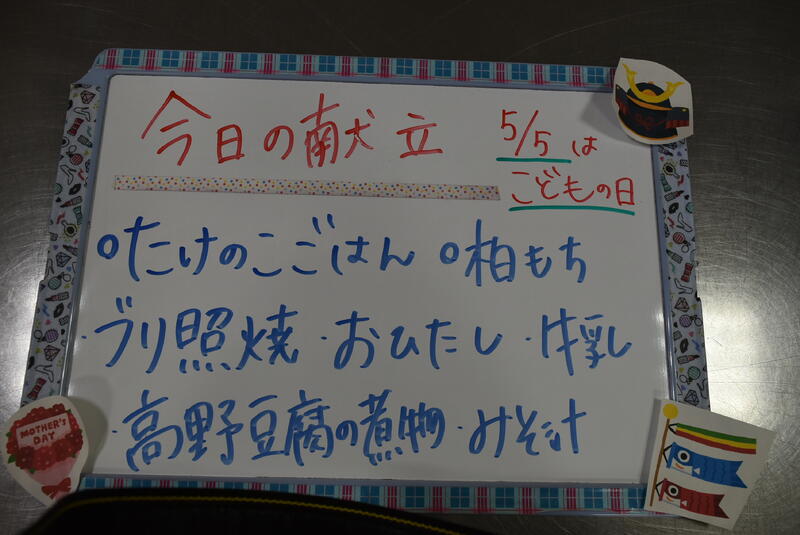 今日の献立
5/5は
こどもの日
○たけのこごはん ○柏もち
・ブリ照焼・おひたし・牛乳
・高野豆腐の煮物・みそ汁
MOTHER'S
DAY